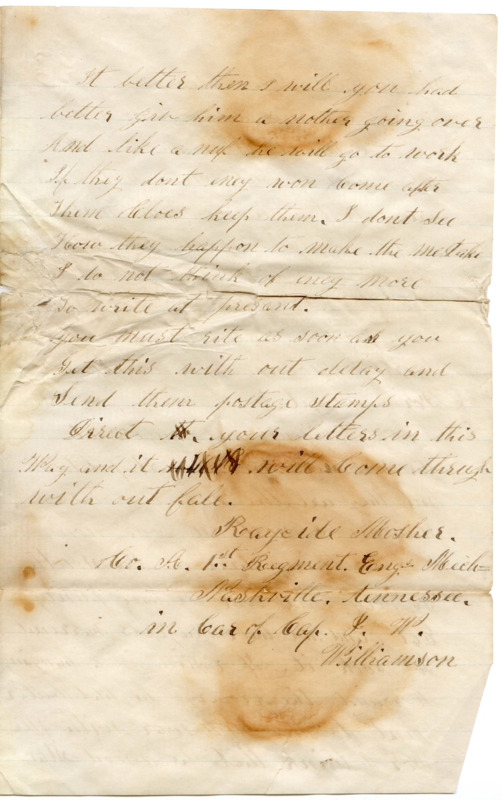 It better then I will you had
better giv him a nother going over
And like a nuf he will go to work
If they dont eney won Come after
Them Cloes keep them. I dont see
How they happon to make the mestake
I do not think of eney more
to write at present.
You must rite as soon as you
Get this with out delay and
Send them postage stamps
Direct your letters in this
Way and it will Come through
with out fale.
Mosher.
Co. A. 1st Regment. Eng. Mich
Nashville. Tennessee.
in Car of Cap. J. W.
Williamson